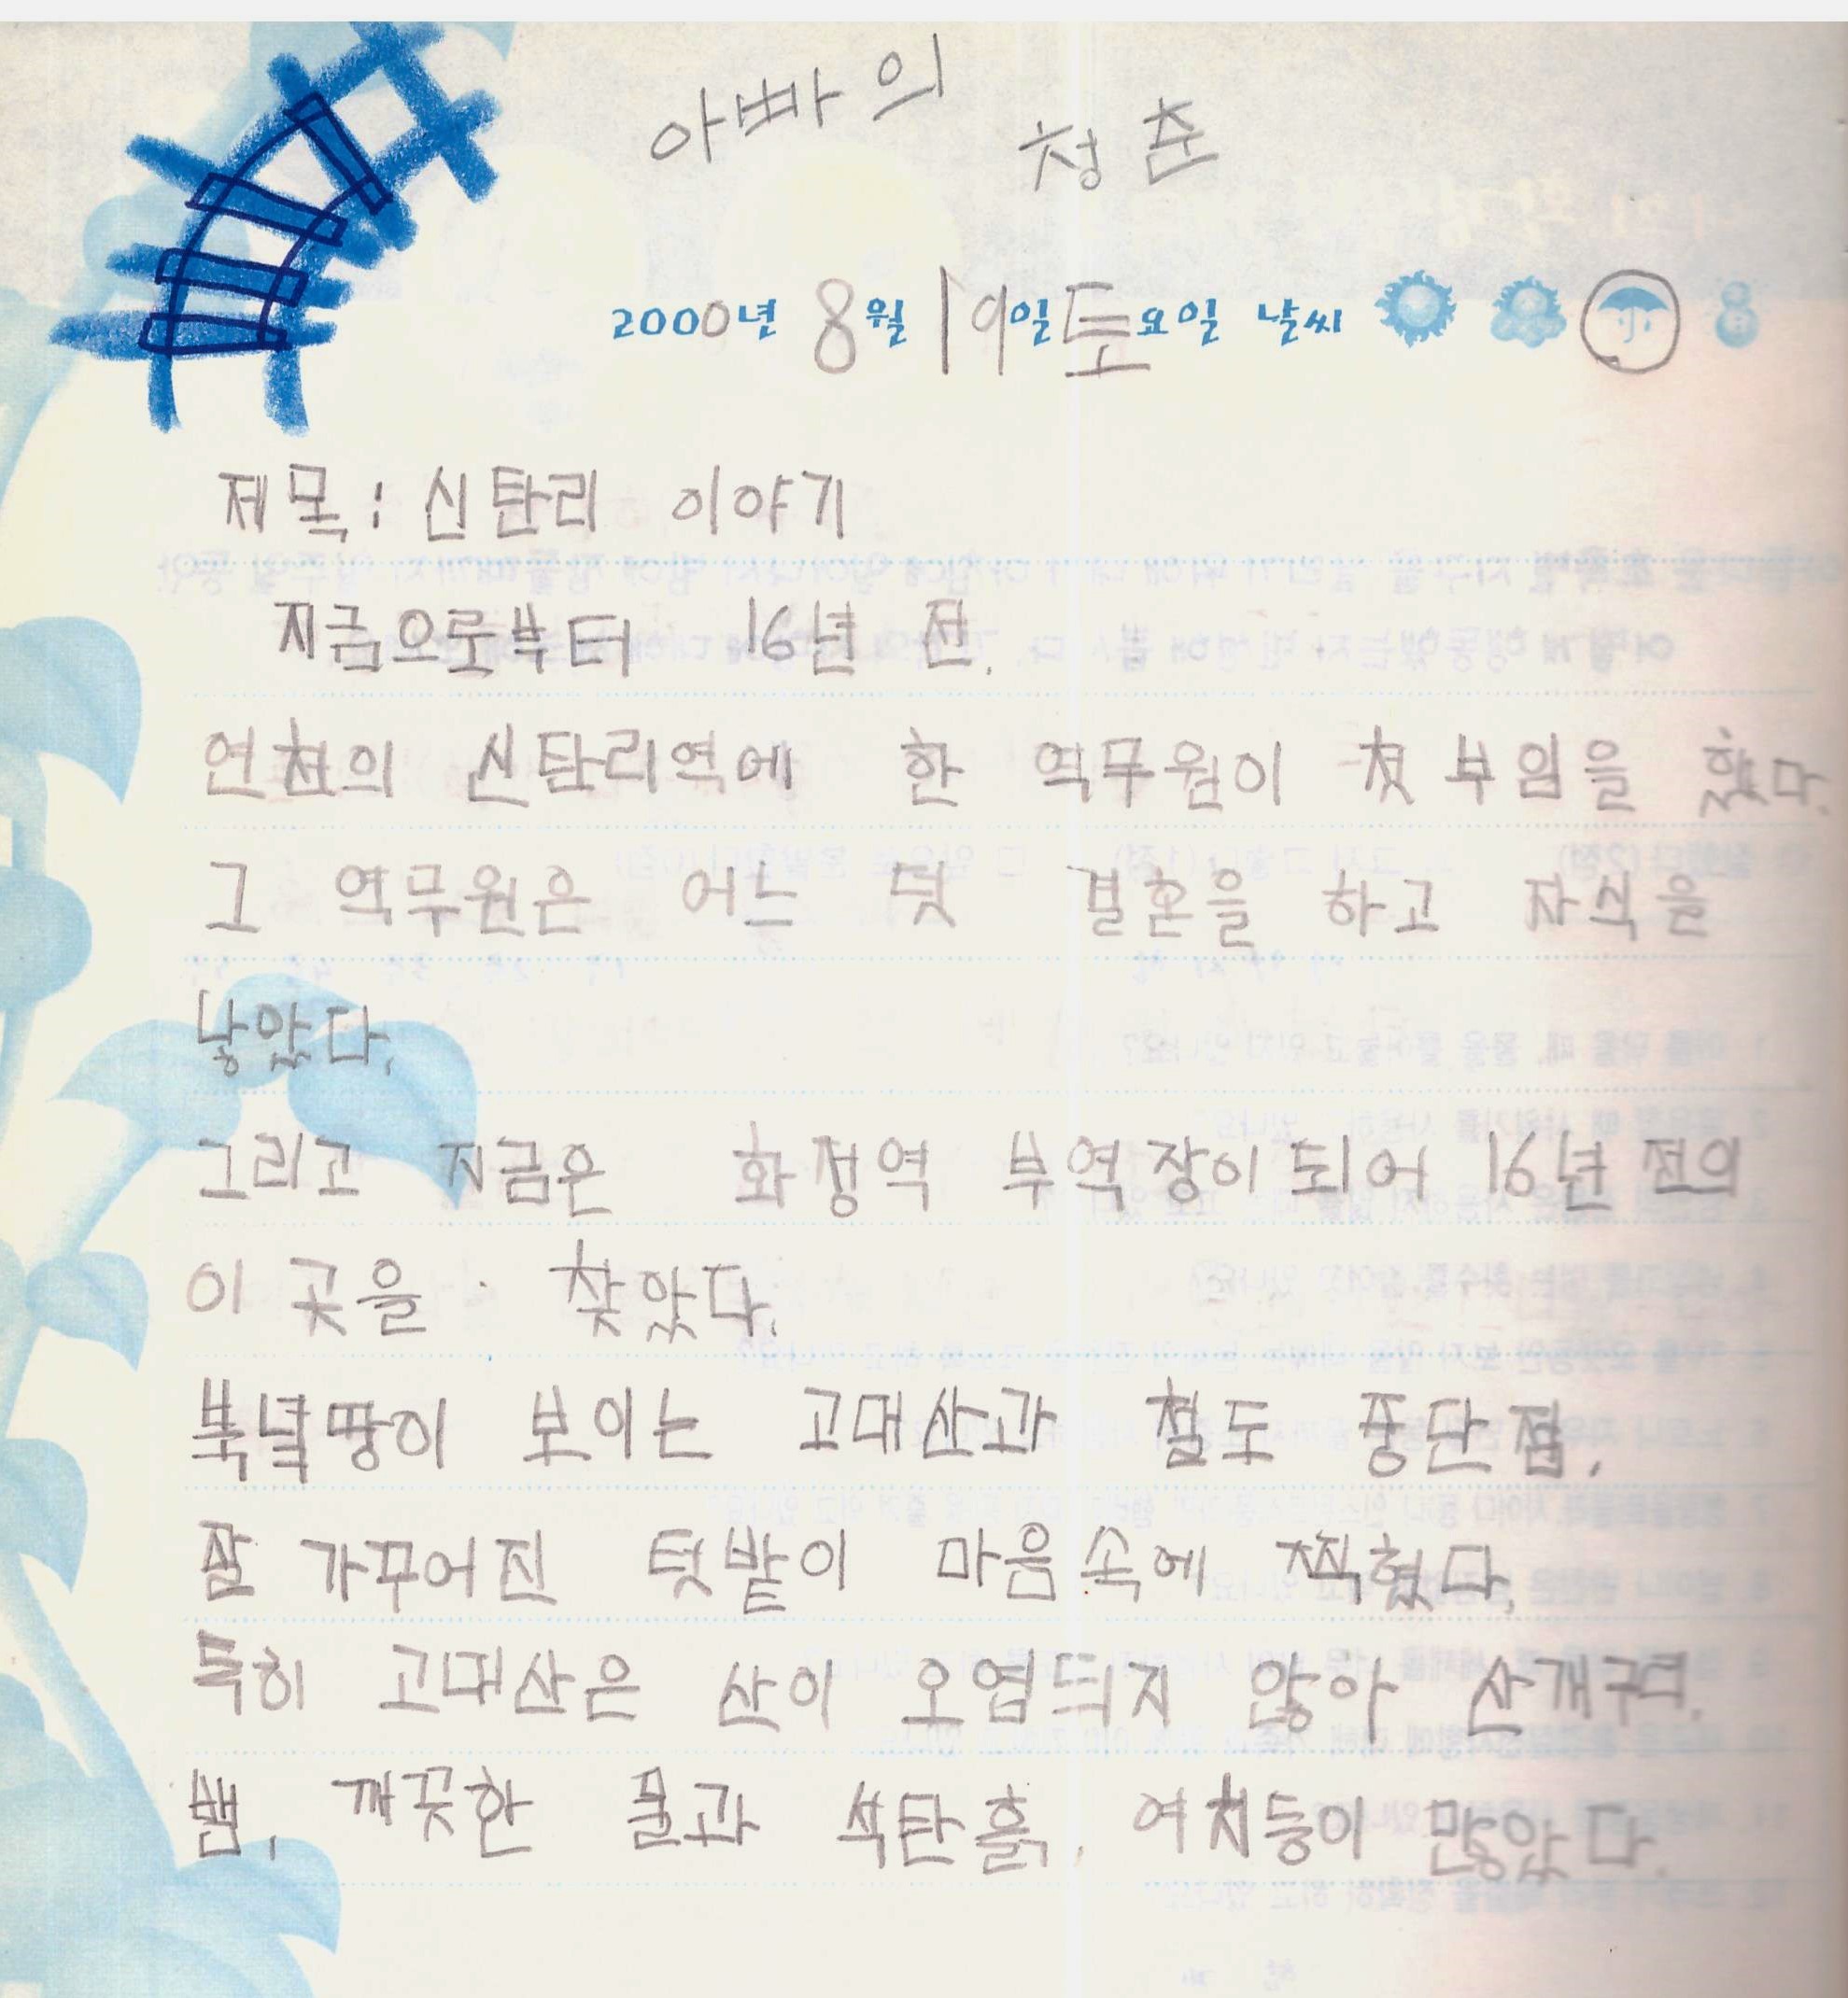 아빠의 청춘
2000년 8월 19일 토요일 날씨
제목: 신탄리 이야기
지금으로부터 16년 전.
연천의 신탄리역에 한 역무원이 첫 부임을 했다.
그 역무원은 어느 덧 결혼을 하고 자식을
낳았다.
그리고 지금은 화정역 부역장이 되어 16년 전의
이 곳을 찾았다.
북녘땅이 보이는 고대산과 철도 중단점.
잘 가꾸어진 텃밭이 마음속에 찍혔다.
특히 고대산은 산이 오염되지 않아 산개구리.
뱀. 깨끗한 물과 석탄흙. 여치등이 많았다.